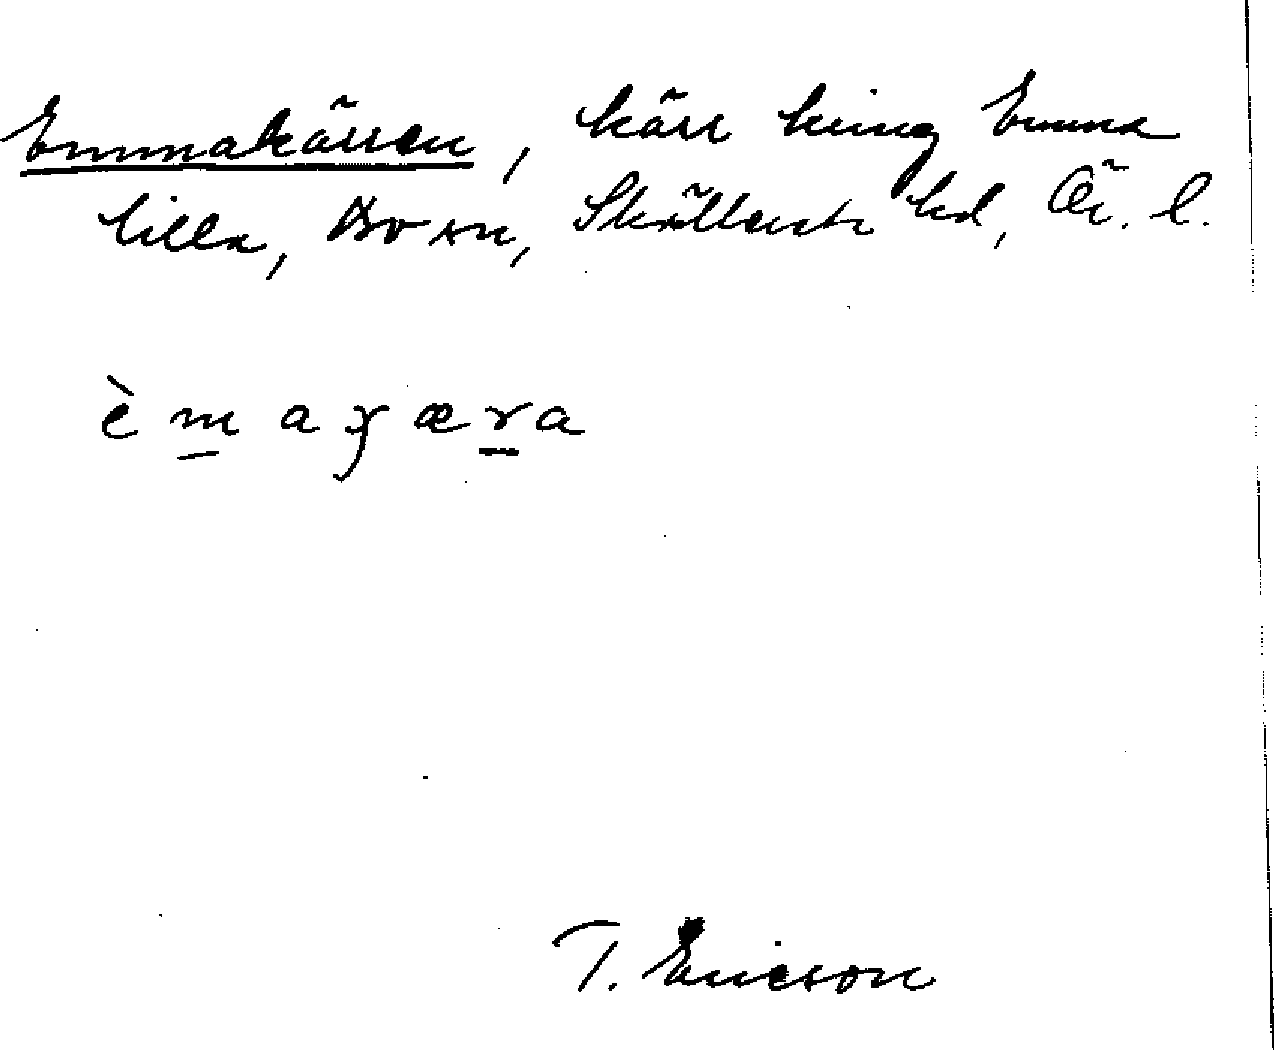 Emmakärren, kärr kring Emma
lilla, Bo sn, Sköllersta hd, Ör. l.
èmaɣæra
T. Ericson